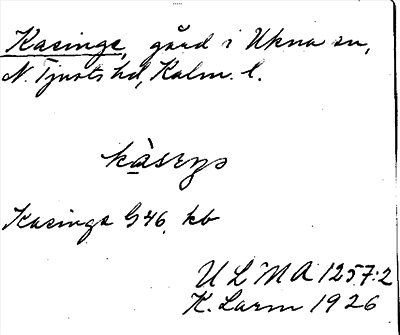 Kasinge, gård i Ukna sn,
N. Tjusts hd, Kalm. l.
Kasinge G46, kb
ULMA 1257:2
K. Larm 1926